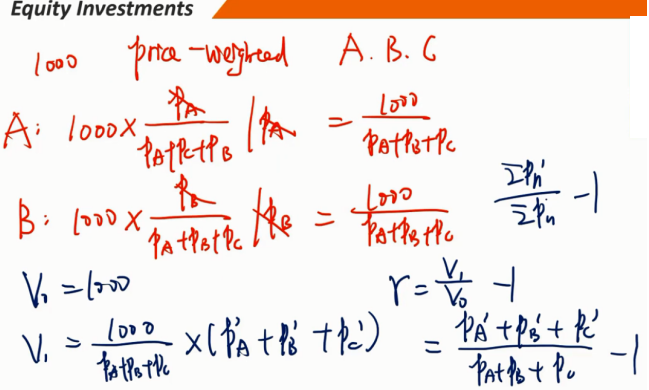 Equity Investments
1000 price-weighted A. B. C
A: 1000 × P_A / (P_A+P_C+P_B) / P_A = 1000 / (P_A+P_B+P_C)
B: 1000 × P_B / (P_A+P_B+P_C) / P_B = 1000 / (P_A+P_B+P_C)
ΣP_n' / ΣP_n - 1
V_0 = 1000
r = V_1 / V_0 - 1
V_1 = 1000 / (P_A+P_B+P_C) × (P_A' + P_B' + P_C')
= (P_A' + P_B' + P_C') / (P_A+P_B+P_C) - 1